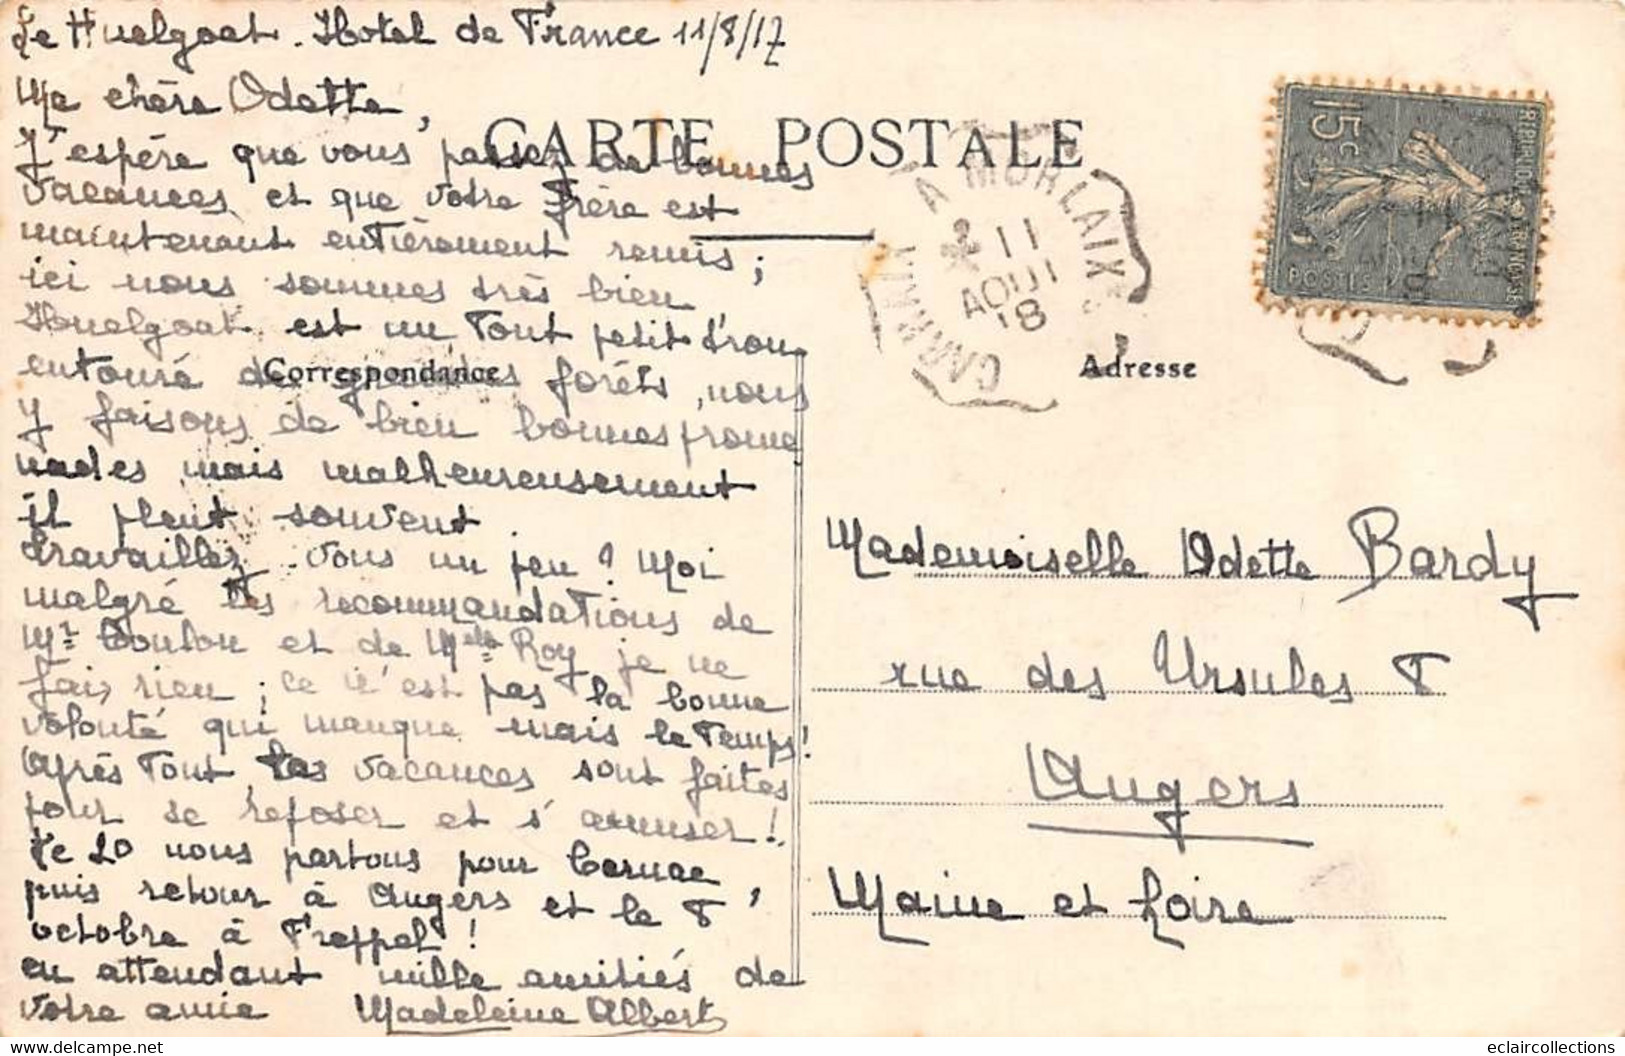 Le Huelgoat. Hotel de France 11/8/17
Ma chère Odette,
J'espère que vous passez de bonnes
vacances et que votre frère est
maintenant entièrement remis ;
ici nous sommes très bien
Huelgoat est un tout petit trou
entouré de grandes forêts, nous
y faisons de bien bonnes prome
nades mais malheureusement
il pleut souvent
travaillez vous un peu ? Moi
malgré les recommandations de
Mr et de Melle Roy je ne
fais rien ; ce n'est pas la bonne
volonté qui manque mais le temps !
Après tout les vacances sont faites
pour se reposer et s'amuser !
le 20 nous partons pour Carnac,
puis retour à Angers et le 8
octobre à Freppel !
en attendant mille amitiés de
votre amie Madeleine Albert
CARTE POSTALE
Correspondance
Adresse
A MORLAIX
11
AOUT
18
15c
POSTES
Mademoiselle Odette Bardy
rue des Ursules 8
Angers
Maine et Loire
www.delcampe.net
eclaircollections